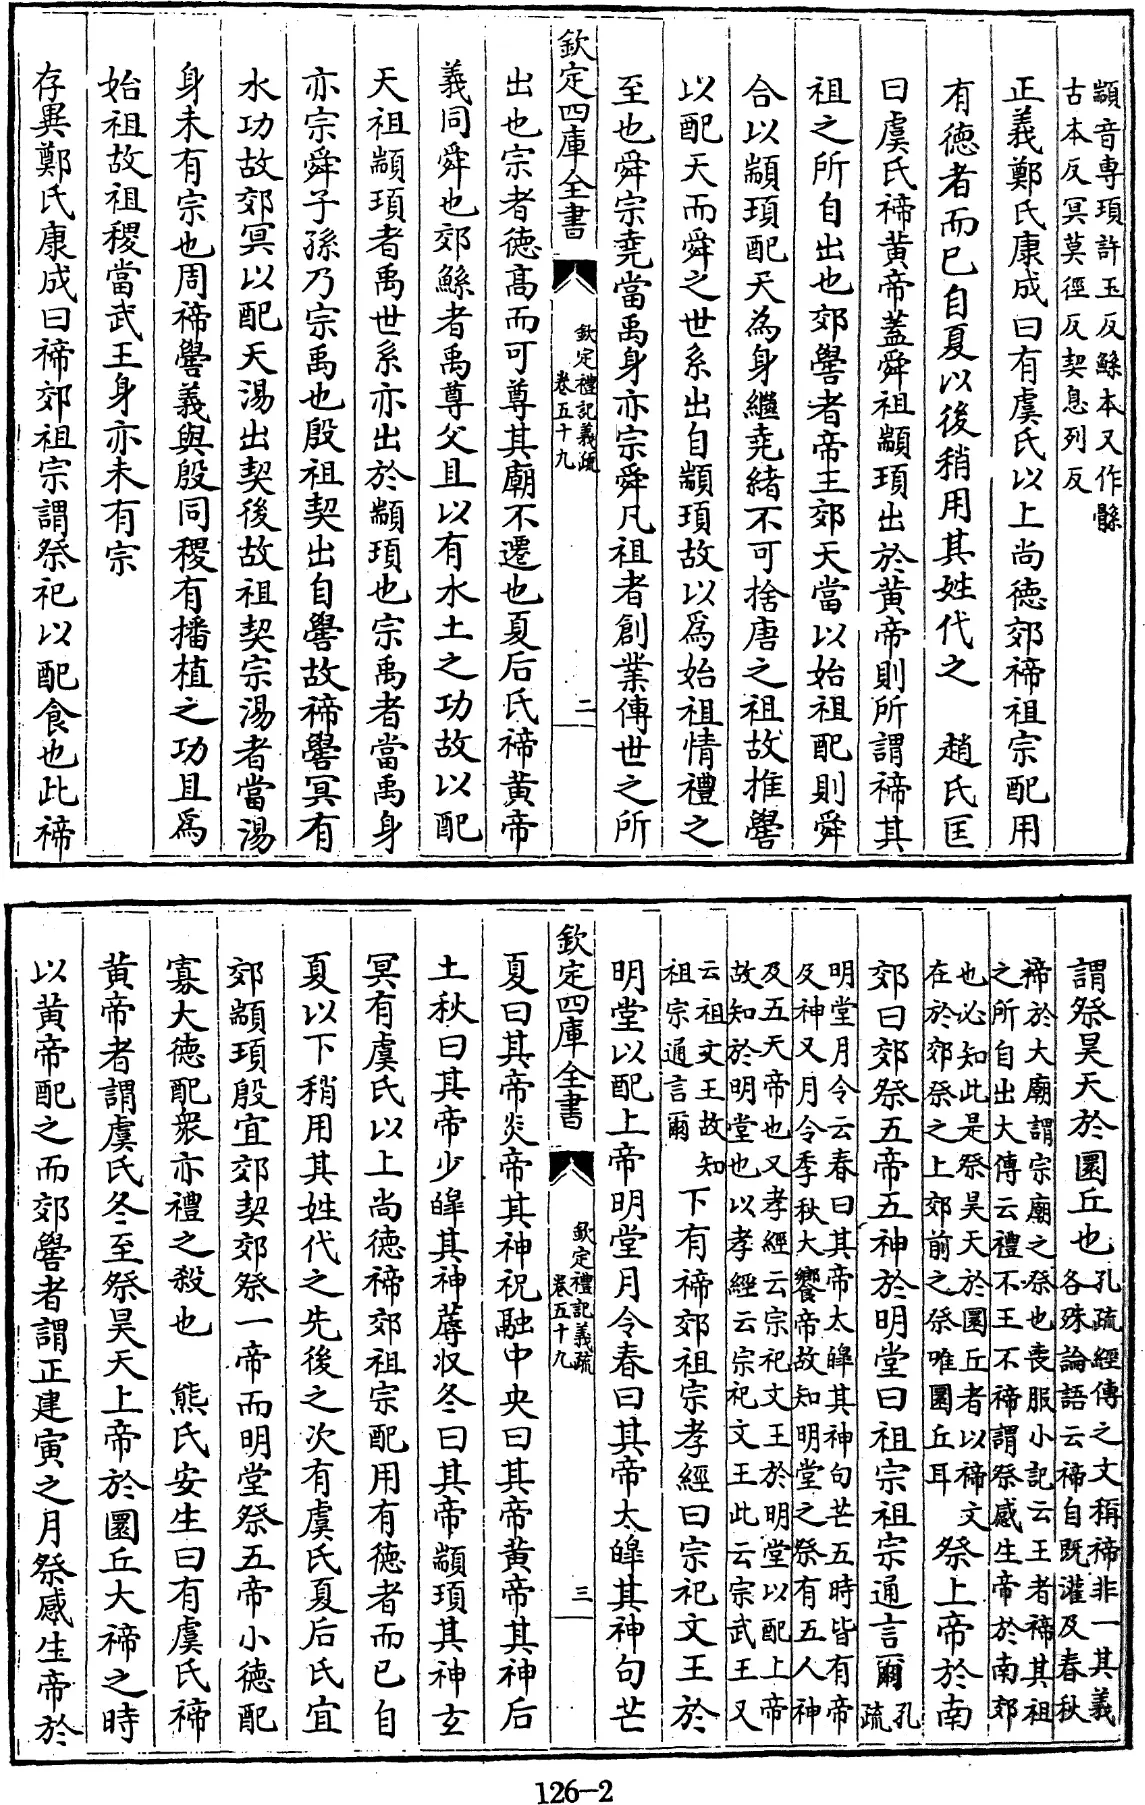 顓音專頊許玉反鯀本又作骸
古本反冥莫徑反契息列反
正義鄭氏康成曰有虞氏以上尚徳郊禘祖宗配用
有徳者而已自夏以後稍用其姓代之　趙氏匡
曰虞氏禘黄帝蓋舜祖顓頊出於黄帝則所謂禘其
祖之所自出也郊嚳者帝王郊天當以始祖配則舜
合以顓頊配天為身繼堯緒不可捨唐之祖故推嚳
以配天而舜之世系出自顓頊故以爲始祖情禮之
至也舜宗堯當禹身亦宗舜凡祖者創業傳世之所
欽定四庫全書
欽定禮記義疏
卷五十九
二
出也宗者徳髙而可尊其廟不遷也夏后氏禘黄帝
義同舜也郊鯀者禹尊父且以有水土之功故以配
天祖顓頊者禹世系亦出於顓頊也宗禹者當禹身
亦宗舜子孫乃宗禹也殷祖契出自嚳故禘嚳冥有
水功故郊冥以配天湯出契後故祖契宗湯者當湯
身未有宗也周禘嚳義與殷同稷有播植之功且爲
始祖故祖稷當武王身亦未有宗
存異鄭氏康成曰禘郊祖宗謂祭祀以配食也此禘
謂祭昊天於圜丘也
孔疏經傳之文稱禘非一其義
各殊論語云禘自既灌及春秋
禘於大廟謂宗廟之祭也喪服小記云王者禘其祖
之所自出大傳云禮不王不禘謂祭感生帝於南郊
也必知此是祭昊天於圜丘者以禘文
在於郊祭之上郊前之祭唯圜丘耳
祭上帝於南
郊曰郊祭五帝五神於明堂曰祖宗祖宗通言爾
孔
疏
明堂月令云春曰其帝太皞其神句芒五時皆有帝
及神又月令季秋大饗帝故知明堂之祭有五人神
及五天帝也又孝經云宗祀文王於明堂以配上帝
故知於明堂也以孝經云宗祀文王此云宗武王又
云祖文王故知
祖宗通言爾
下有禘郊祖宗孝經曰宗祀文王於
明堂以配上帝明堂月令春曰其帝太皞其神句芒
欽定四庫全書
欽定禮記義疏
卷五十九
三
夏曰其帝炎帝其神祝融中央曰其帝黄帝其神后
土秋曰其帝少皞其神蓐収冬曰其帝顓頊其神玄
冥有虞氏以上尚徳禘郊祖宗配用有徳者而已自
夏以下稍用其姓代之先後之次有虞氏夏后氏宜
郊顓頊殷宜郊契郊祭一帝而明堂祭五帝小徳配
寡大徳配衆亦禮之殺也　熊氏安生曰有虞氏禘
黄帝者謂虞氏冬至祭昊天上帝於圜丘大禘之時
以黄帝配之而郊嚳者謂正建寅之月祭感生帝於
126-2